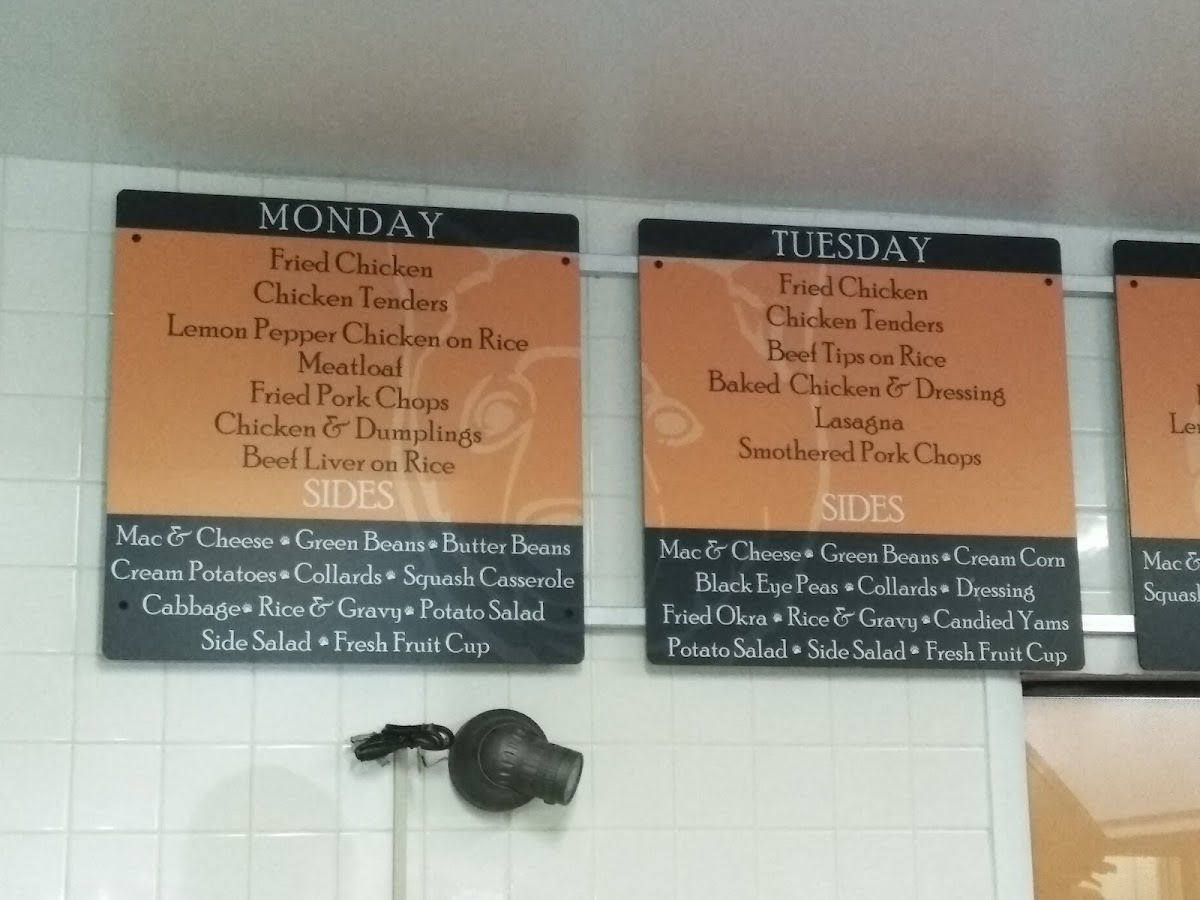 MONDAY
Fried Chicken
Chicken Tenders
Lemon Pepper Chicken on Rice
Meatloaf
Fried Pork Chops
Chicken & Dumplings
Beef Liver on Rice
SIDES
Mac & Cheese Green Beans Butter Beans
Cream Potatoes Collards Squash Casserole
Cabbage Rice & Gravy Potato Salad
Side Salad Fresh Fruit Cup
TUESDAY
Fried Chicken
Chicken Tenders
Beef Tips on Rice
Baked Chicken & Dressing
Lasagna
Smothered Pork Chops
SIDES
Mac & Cheese Green Beans Cream Corn
Black Eye Peas Collards Dressing
Fried Okra Rice & Gravy Candied Yams
Potato Salad Side Salad Fresh Fruit Cup
Mac &